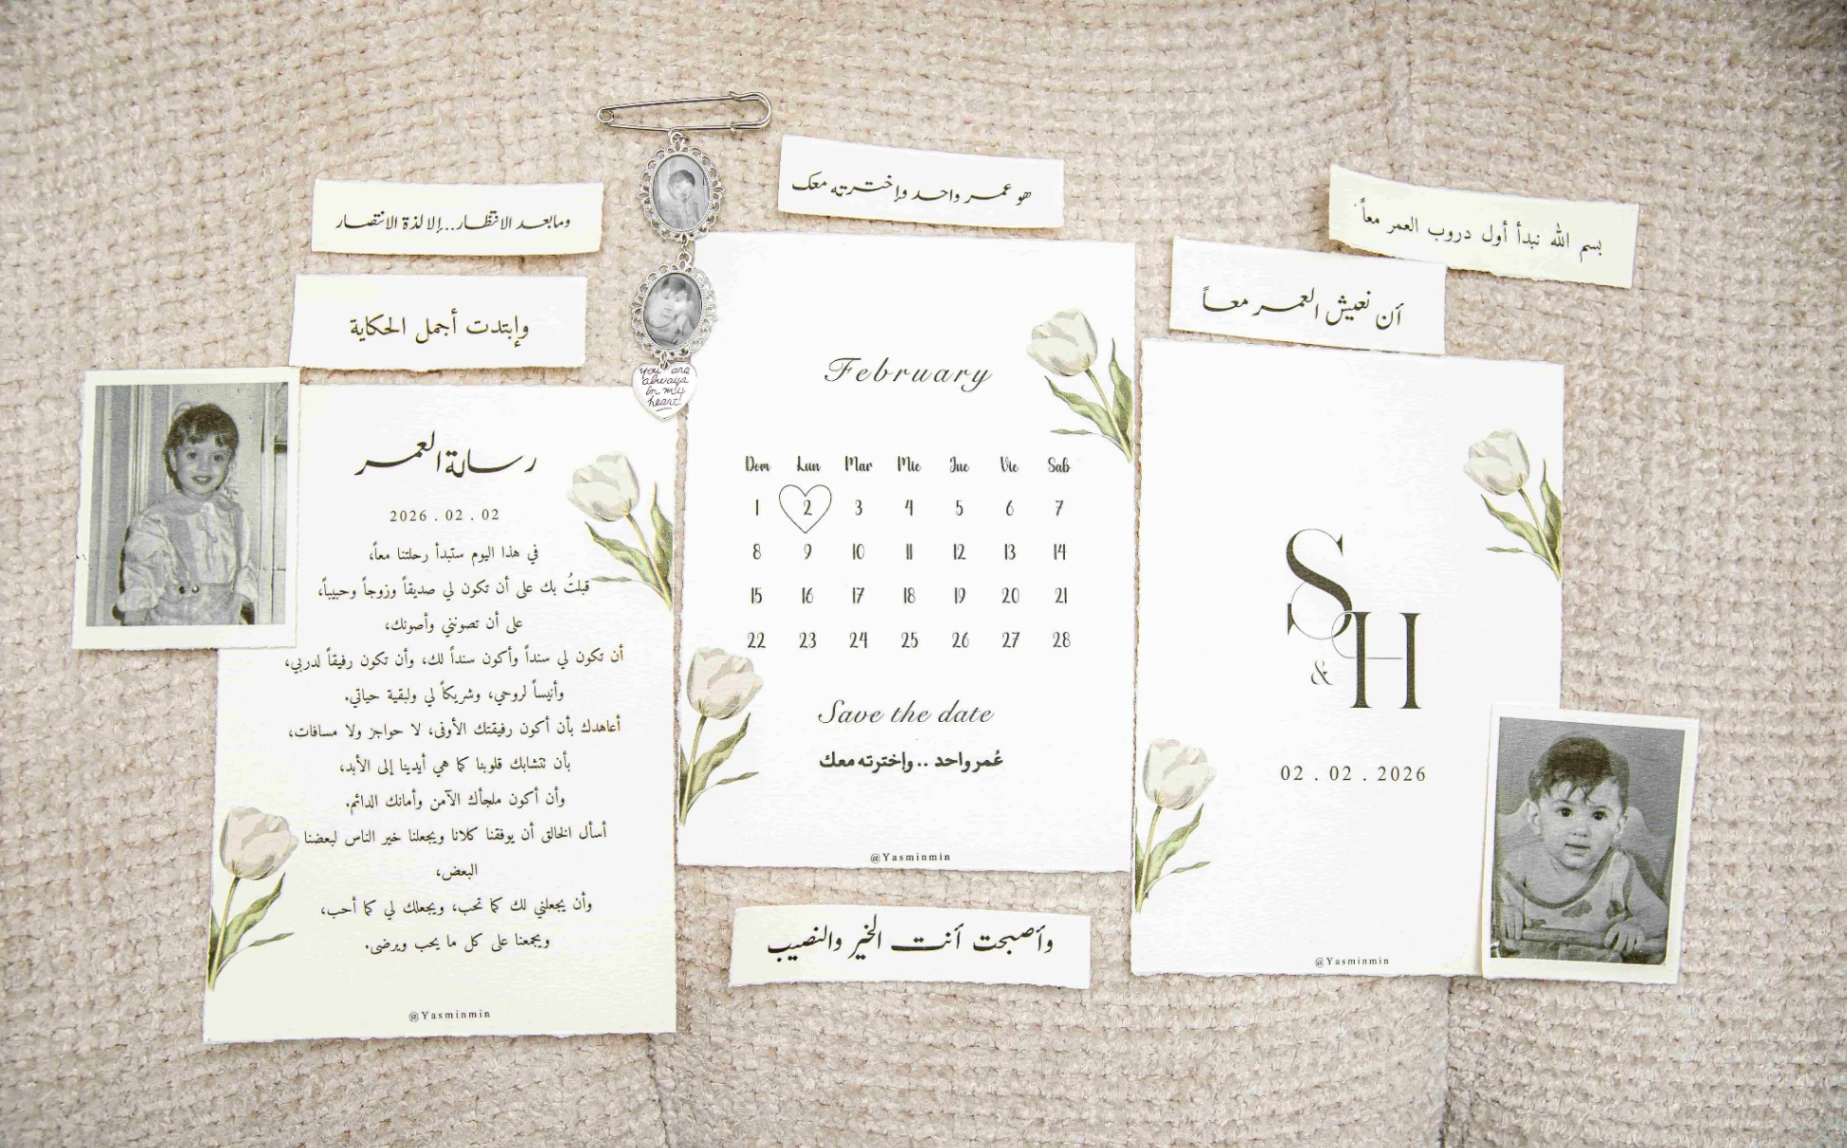 ومابعد الانتظار...إلا لذة الانتصار
وإبتدت أجمل الحكاية
رسالة العمر
2026 . 02 . 02
في هذا اليوم ستبدأ رحلتنا معاً،
قبلتُ بك على أن تكون لي صديقاً وزوجاً وحبيباً،
على أن تصونني وأصونك،
أن تكون لي سنداً وأكون سنداً لك، وأن تكون رفيقاً لدربي،
وأنيساً لروحي، وشريكاً لي ولبقية حياتي.
أعاهدك بأن أكون رفيقتك الأوفى، لا حواجز ولا مسافات،
بأن تتشابك قلوبنا كما هي أيدينا إلى الأبد،
وأن أكون ملجأك الآمن وأمانك الدائم.
أسأل الخالق أن يوفقنا كلانا ويجعلنا خير الناس لبعضنا
البعض،
وأن يجعلني لك كما تحب، ويجعلك لي كما أحب،
ويجمعنا على كل ما يحب ويرضى.
@Yasminmin
you are
always
in my
heart
هو عمر واحد وإخترته معك
February
Dom Lun Mar Mie Jue Vie Sab
1 2 3 4 5 6 7
8 9 10 11 12 13 14
15 16 17 18 19 20 21
22 23 24 25 26 27 28
Save the date
عُمر واحد .. وإخترته معك
@Yasminmin
وأصبحت أنت الخير والنصيب
بسم الله نبدأ أول دروب العمر معاً
أن نعيش العمر معاً
S
& H
02 . 02 . 2026
@Yasminmin